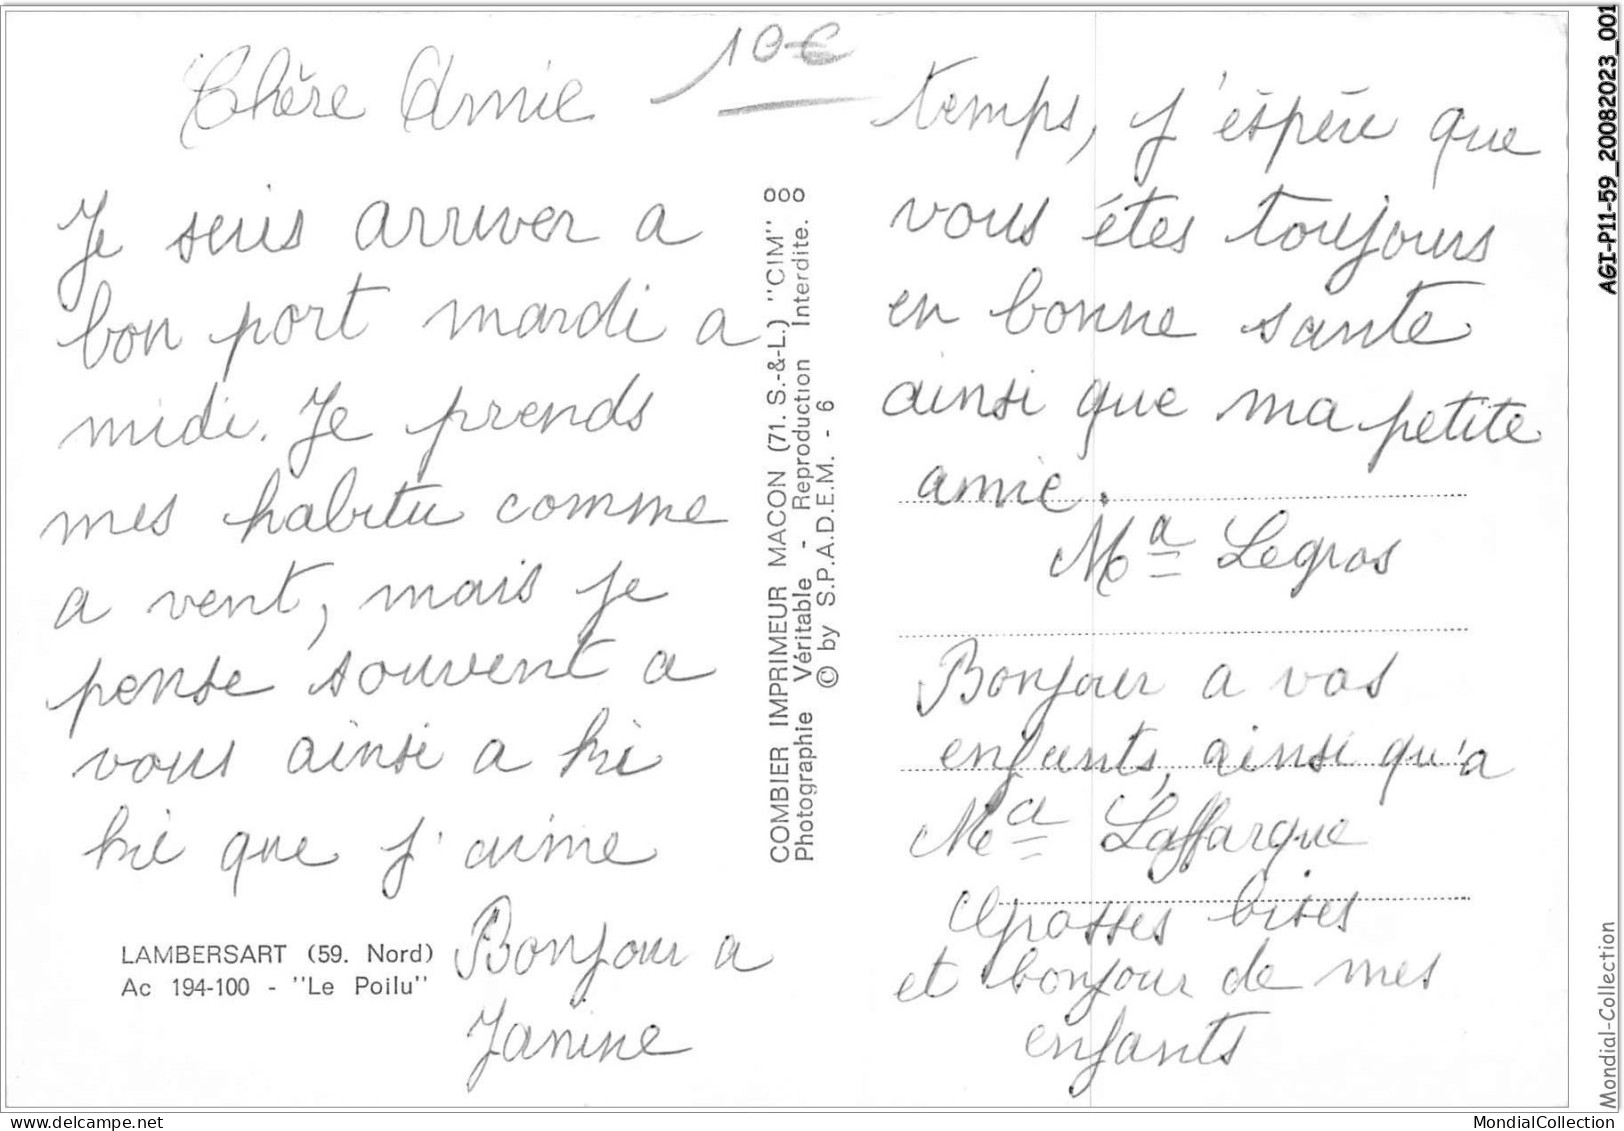 Chère Amie
10€
Je suis arriver a
bon port mardi a
midi. Je prends
mes habitu comme
a vent, mais je
pense souvent a
vous ainsi a kie
kie que j'aime
Bonjour a
Janine
LAMBERSART (59. Nord)
Ac 194-100 - "Le Poilu"
COMBIER IMPRIMEUR MACON (71. S.-&-L.) "CIM"
Photographie Véritable - Reproduction Interdite.
© by S.P.A.D.E.M. - 6
temps, j'éspére que
vous étes toujours
en bonne sante
ainsi que ma petite
amie.
Ma Legros
Bonjour a vos
enfants, ainsi qu'a
Ma Laffargue
Grosses bises
et bonjour de mes
enfants
AGI-P11-59_20082023_001
Mondial-Collection
MondialCollection